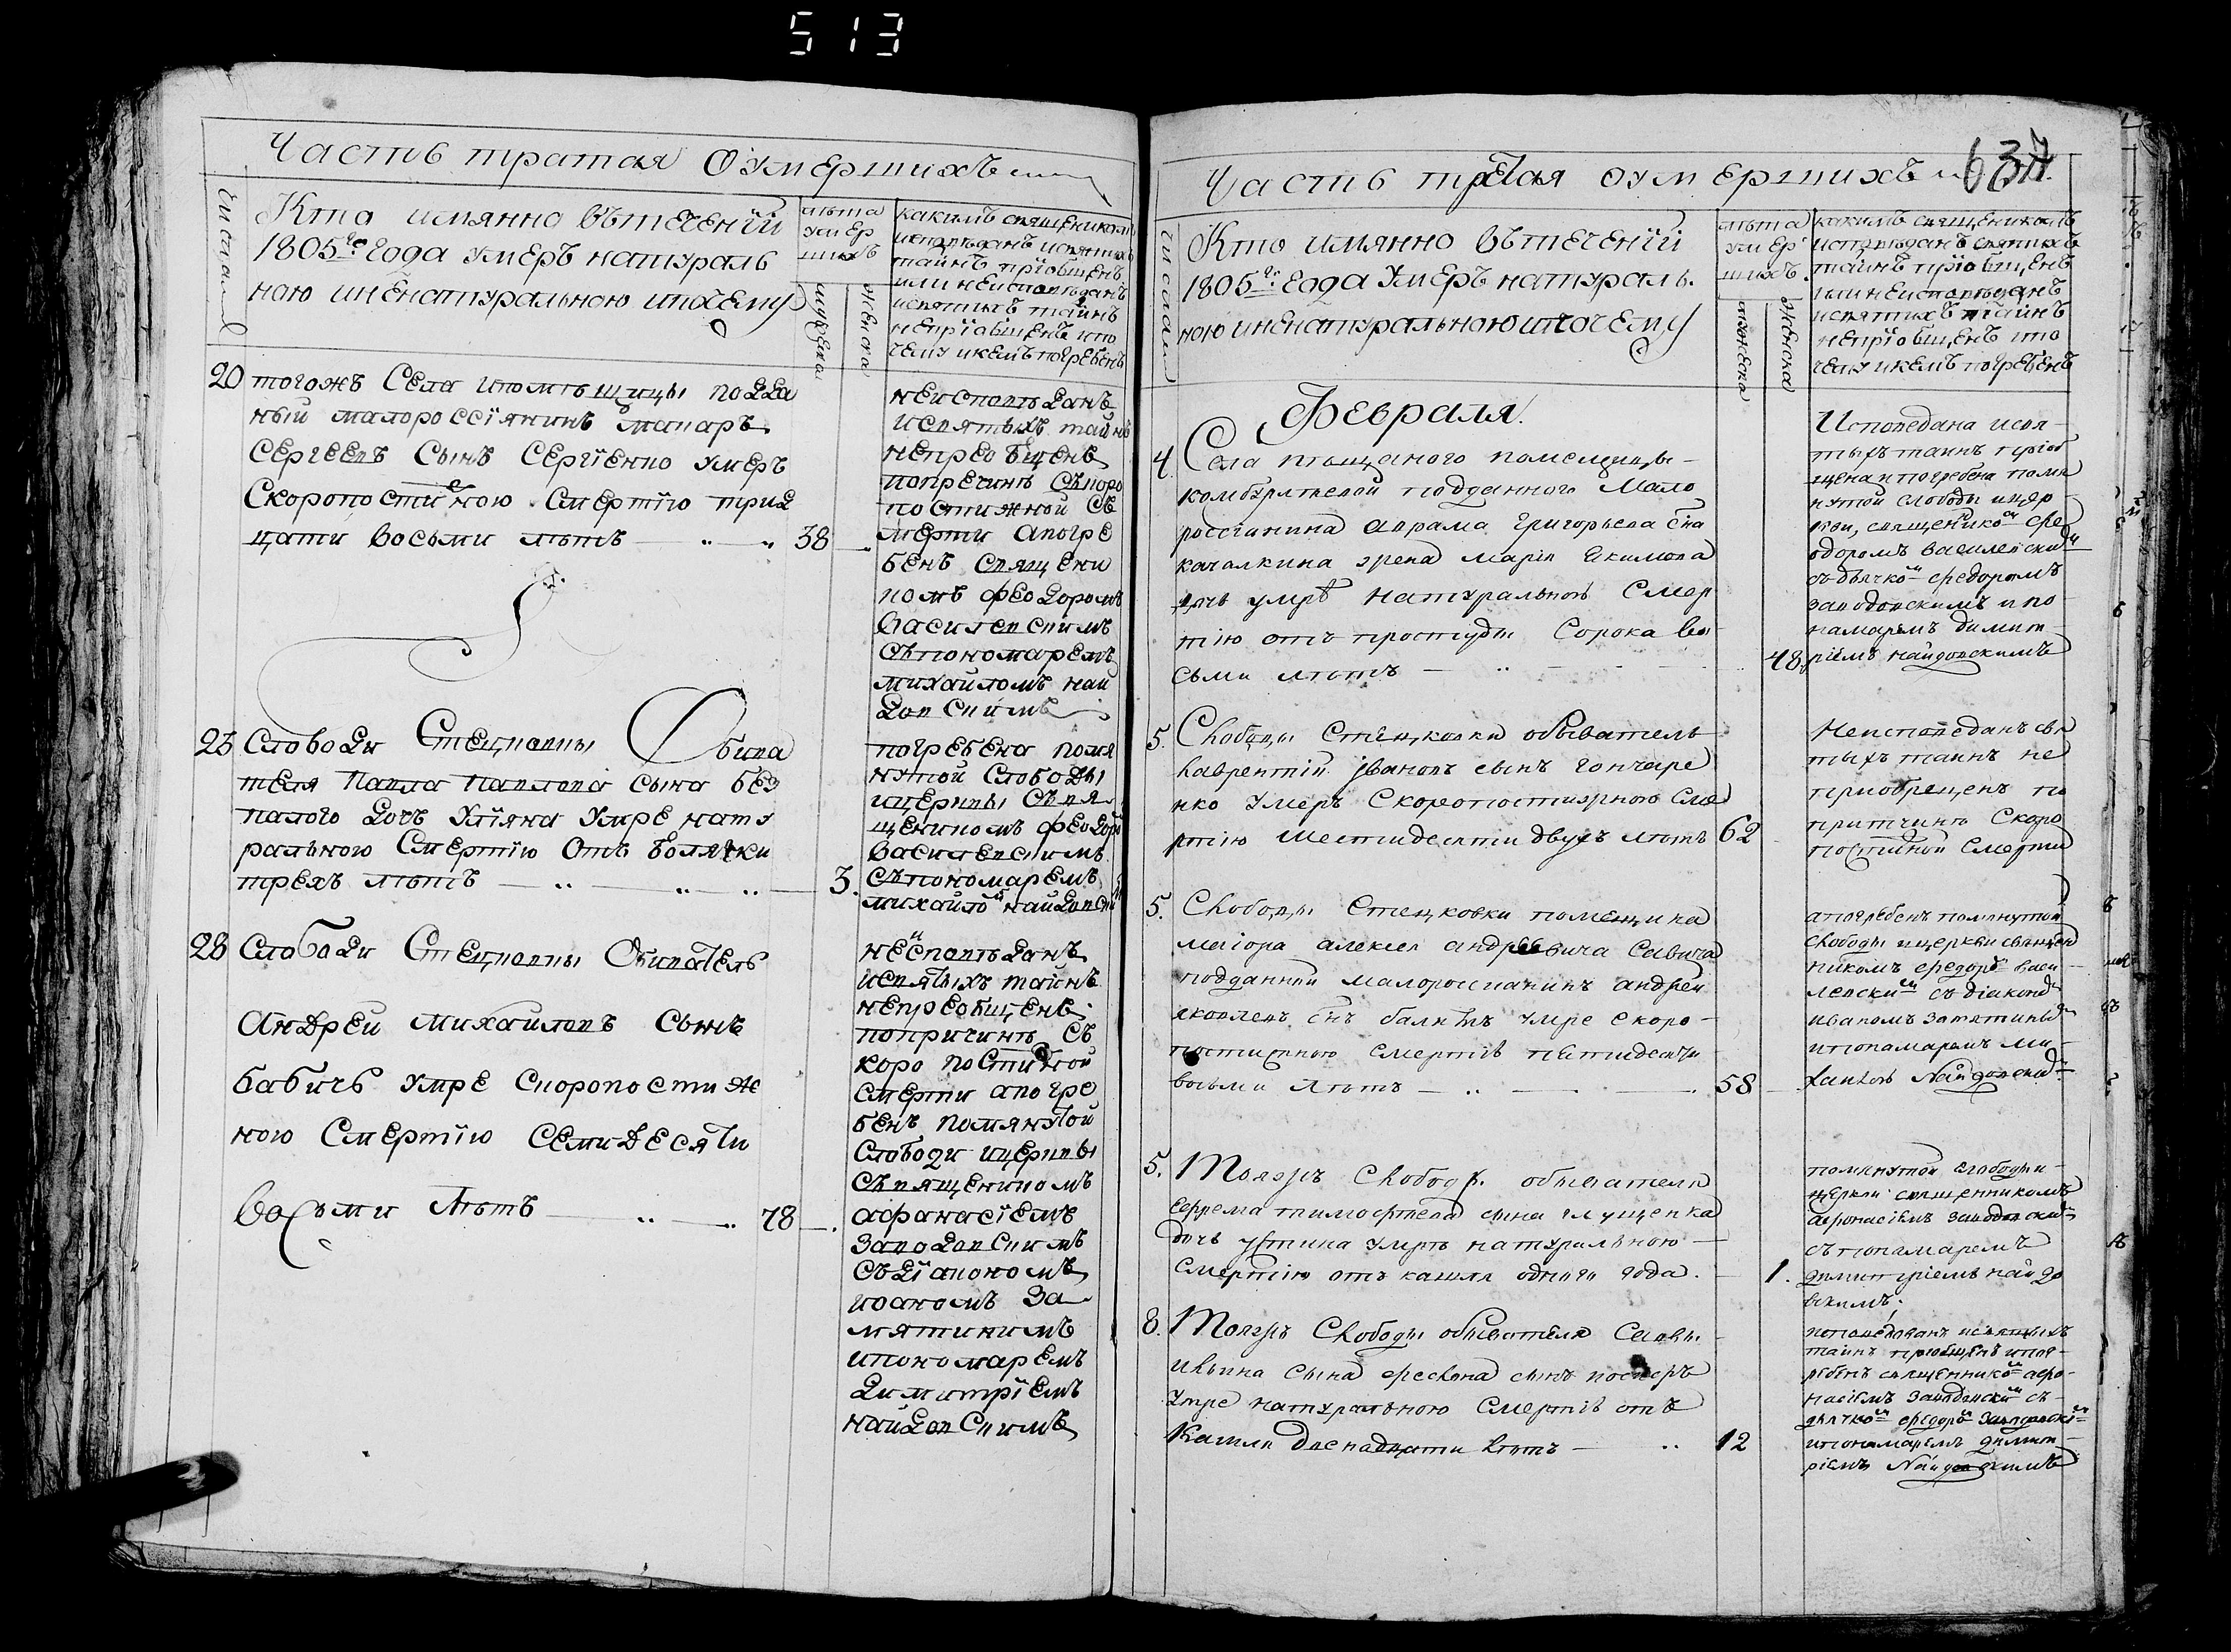 513
Часть третая Оумершихъ
числа
Кто имянно вътечении
1805го года умеръ натураль
ною иненатуральною ипочему
лѣта
умер
шихъ
мужеска
женска
какимъ священикомъ
исповѣданъ исвятыхъ
таинъ приобщенъ
или неисповѣданъ
исвятыхъ таинъ
неприобщенъ ипо
чему икемъ погребенъ
20 тогожъ Села ипомѣщицыподда
ный малороссіянинъ макаръ
Сергеевъ Сынъ Сергіенко умеръ
Скоропостижною Смертію трид
цати восьми лѣтъ 38
неисповѣданъ
исвятыхъ таинъ
непреобщенъ
попречинѣ Скоро
постижной Сь
мерти апогре
бенъ Священи
комъ феодоромъ
Василевскимъ
Съпономаремъ
михайломъ най
довскимъ
25 Слободи Стецковки Обива
теля Павла Павлова сына без
палого дочь Уліяна Умре нату
ральною Смертію Отъ болячки
трехъ лѣтъ 3.
погребена помя
нутой Слободы
ицеркви Свя
щеникомъ феодоро
Василевскимъ
Съпономаремъ
михайломъ найдовски
28 Слободи Стецковки Обиватель
Андрей Михайловъ Сынъ
бабичь умре Скоропостиж
ною Смертію Семидесяти
Восьми Лѣтъ 78
неисповѣданъ
исвятыхъ таинъ
непреобщенъ
попричинѣ Съ
коро постижной
смерти апогре
бенъ помянутой
Слободи ицеркви
Священикомъ
афанасіемъ
Заводовскимъ
Съдіакономъ
иоаномъ За
мятинимъ
ипономаремъ
Димитріемъ
найдовскимъ
Часть третая оумершихъ
637
числа
Кто имянно вътечении
1805го года Умеръ натураль
ною иненатуральною ипочему
лѣта
умер
шихъ
мужеска
женска
какимъ священикомъ
исповѣданъ исвятыхъ
таинъ приобщенъ
или неисповѣданъ
исвятыхъ таинъ
неприобщенъ ипо
чему икемъ погребенъ
Февраля.
4. Села пѣщаного помещицы
подданного Мало
россіанина Аврама Григорьева сна
качалкина жена марія Екимова
дочь умрѣ натуральною Смер
тію отъ простуды Сорока во
сьми лѣтъ 48
Исповедана исвя
тыхъ таинъ приоб
щена ипогребена помя
нутой слободы ицер
кви, священикомъ фе
одоромъ василевским
съдьячкомъ федоромъ
заводовскимъ ипо
намаремъ димит
ріемъ найдовскимъ
5. Слободы Стецковки обыватель
лаврентій Івановъ сынъ гончаре
нко умеръ Скоропостижною Сме
ртію шестидесяти двухъ лѣтъ 62
Неисповеданъ свя
тыхъ таинъ не
приобрещенъ по
притчинѣ Скоро
постижной Смерти
5. Слободы Стецковки помещика
маіора алексея андреевича Савича
подданній малороссіанинъ андрей
яковлевъ снъ умре скоро
постижною смертію пятидесяти
восьми лѣтъ 58
апогребенъ помянутой
слободы ицеркви священ
никомъ федоромъ васи
левским съдіаконом
иваномъ Замятиным
ипонамаремъ ми
хаиломъ Найдовским
5. Тояжъ Слободы обывателя
Ефрема тимофеева сына глущенка
дочь устина умрѣ натуральною
Смертію отъ кашля одного года. 1.
помянутой слободы и
церкви священникомъ
афонасіемъ заводовским
съпонамаремъ
димитріемъ найдо
вскимъ.
8. Тояжъ Слободы обывателя Саввы
ильина сына сынъ
умре натуральною Смертію отъ
Кашля двенадцати лѣтъ 12
исповедованъ исвятыхъ
таинъ приобщенъ ипог
ребенъ священникомъ афо
насіемъ Заводовским съ
дьячком федором Заводовским
ипонамаремъ димит
ріемъ Найдовскимъ